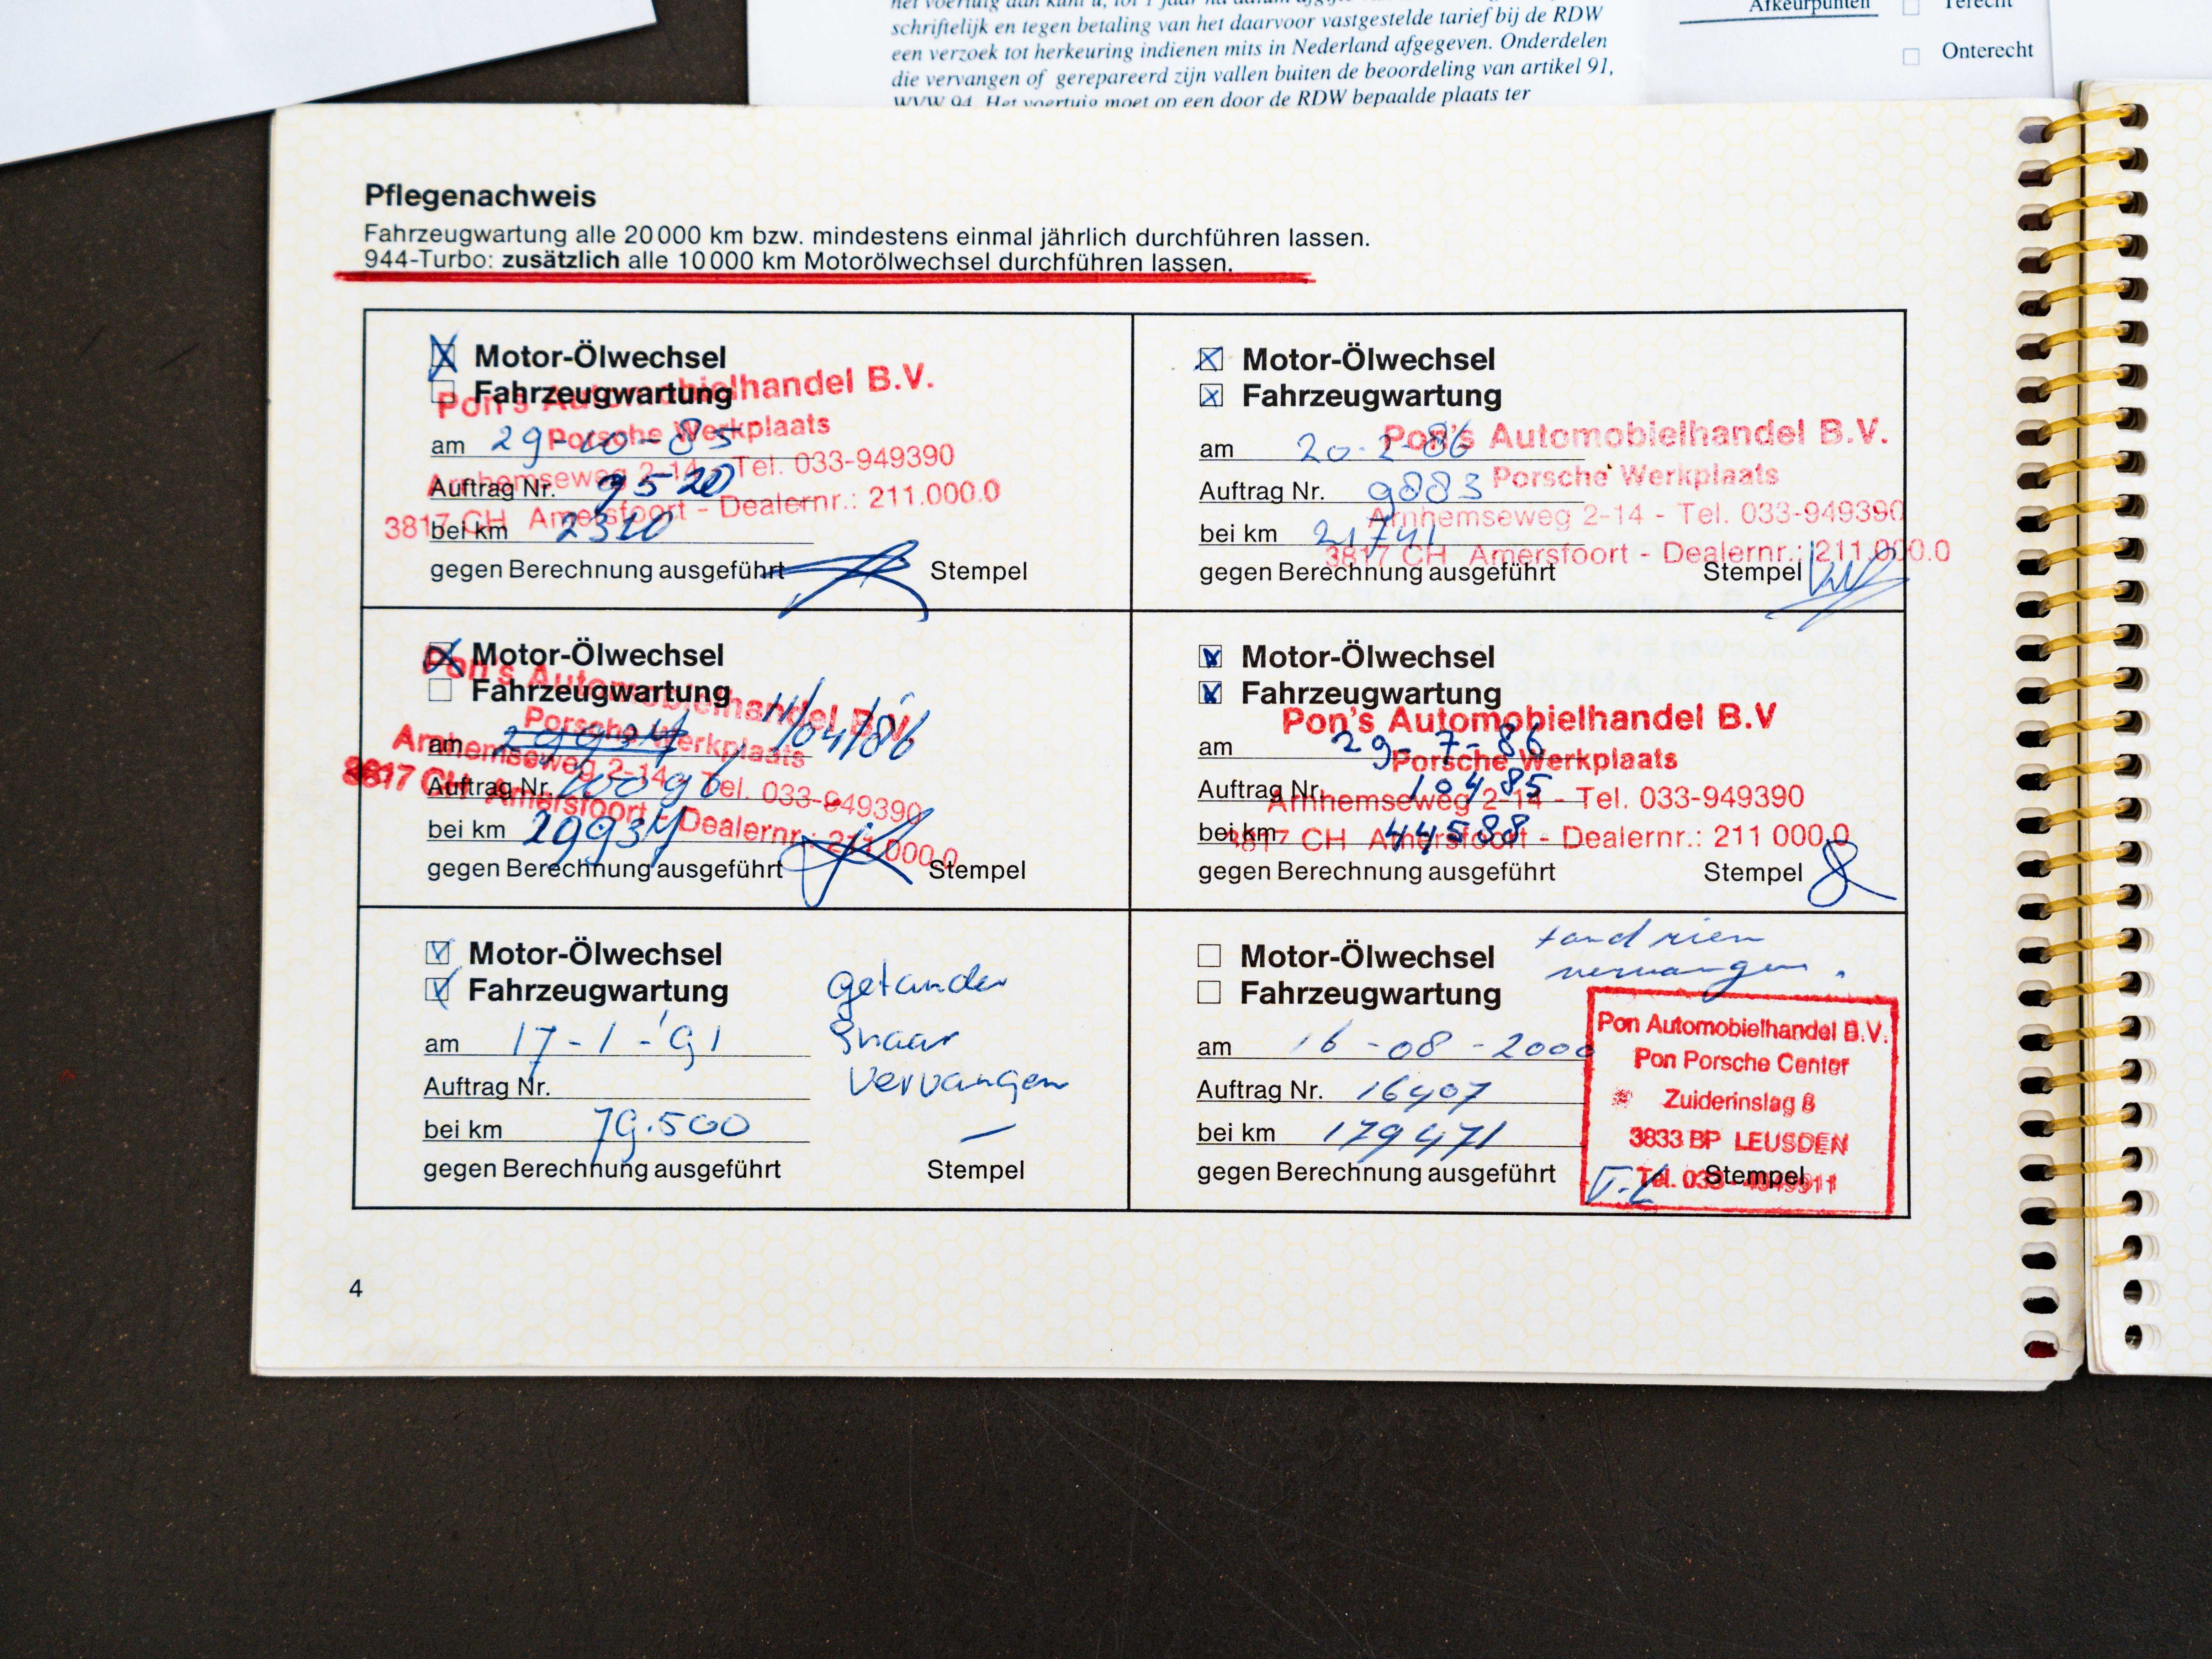 schriftelijk en tegen betaling van het daarvoor vastgestelde tarief bij de RDW
een verzoek tot herkeuring indienen mits in Nederland afgegeven. Onderdelen
die vervangen of gerepareerd zijn vallen buiten de beoordeling van artikel 91,
WVW 94. Het voertuig moet op een door de RDW bepaalde plaats ter
Afkeurpunten
Terecht
Onterecht
Pflegenachweis
Fahrzeugwartung alle 20 000 km bzw. mindestens einmal jährlich durchführen lassen.
944-Turbo: zusätzlich alle 10 000 km Motorölwechsel durchführen lassen.
Motor-Ölwechsel
Fahrzeugwartung
am 29-10-85
Auftrag Nr. 9520
bei km 2310
gegen Berechnung ausgeführt Stempel
Pon's Automobielhandel B.V.
Porsche Werkplaats
Arnhemseweg 2-14 - Tel. 033-949390
3817 CH Amersfoort - Dealernr.: 211.000.0
Motor-Ölwechsel
Fahrzeugwartung
am 20-2-86
Auftrag Nr. 9883
bei km 21741
gegen Berechnung ausgeführt Stempel
Pon's Automobielhandel B.V.
Porsche Werkplaats
Arnhemseweg 2-14 - Tel. 033-949390
3817 CH Amersfoort - Dealernr.: 211.000.0
Motor-Ölwechsel
Fahrzeugwartung
am 11/04/86
Auftrag Nr. 10096
bei km 29934
gegen Berechnung ausgeführt Stempel
Pon's Automobielhandel B.V.
Porsche Werkplaats
Arnhemseweg 2-14 - Tel. 033-949390
3817 CH Amersfoort - Dealernr.: 211.000.0
Motor-Ölwechsel
Fahrzeugwartung
am 29-7-86
Auftrag Nr. 10485
bei km 44588
gegen Berechnung ausgeführt Stempel
Pon's Automobielhandel B.V
Porsche Werkplaats
Arnhemseweg 2-14 - Tel. 033-949390
3817 CH Amersfoort - Dealernr.: 211 000.0
Motor-Ölwechsel
Fahrzeugwartung
am 17-1-'91
Auftrag Nr.
bei km 79.500
gegen Berechnung ausgeführt Stempel
getander
Snaar
Vervangen
Motor-Ölwechsel
Fahrzeugwartung
tandriem
vervangen.
am 16-08-2000
Auftrag Nr. 16407
bei km 179471
gegen Berechnung ausgeführt Stempel
Pon Automobielhandel B.V.
Pon Porsche Center
Zuiderinslag 8
3833 BP LEUSDEN
Tel. 033-4949911
4